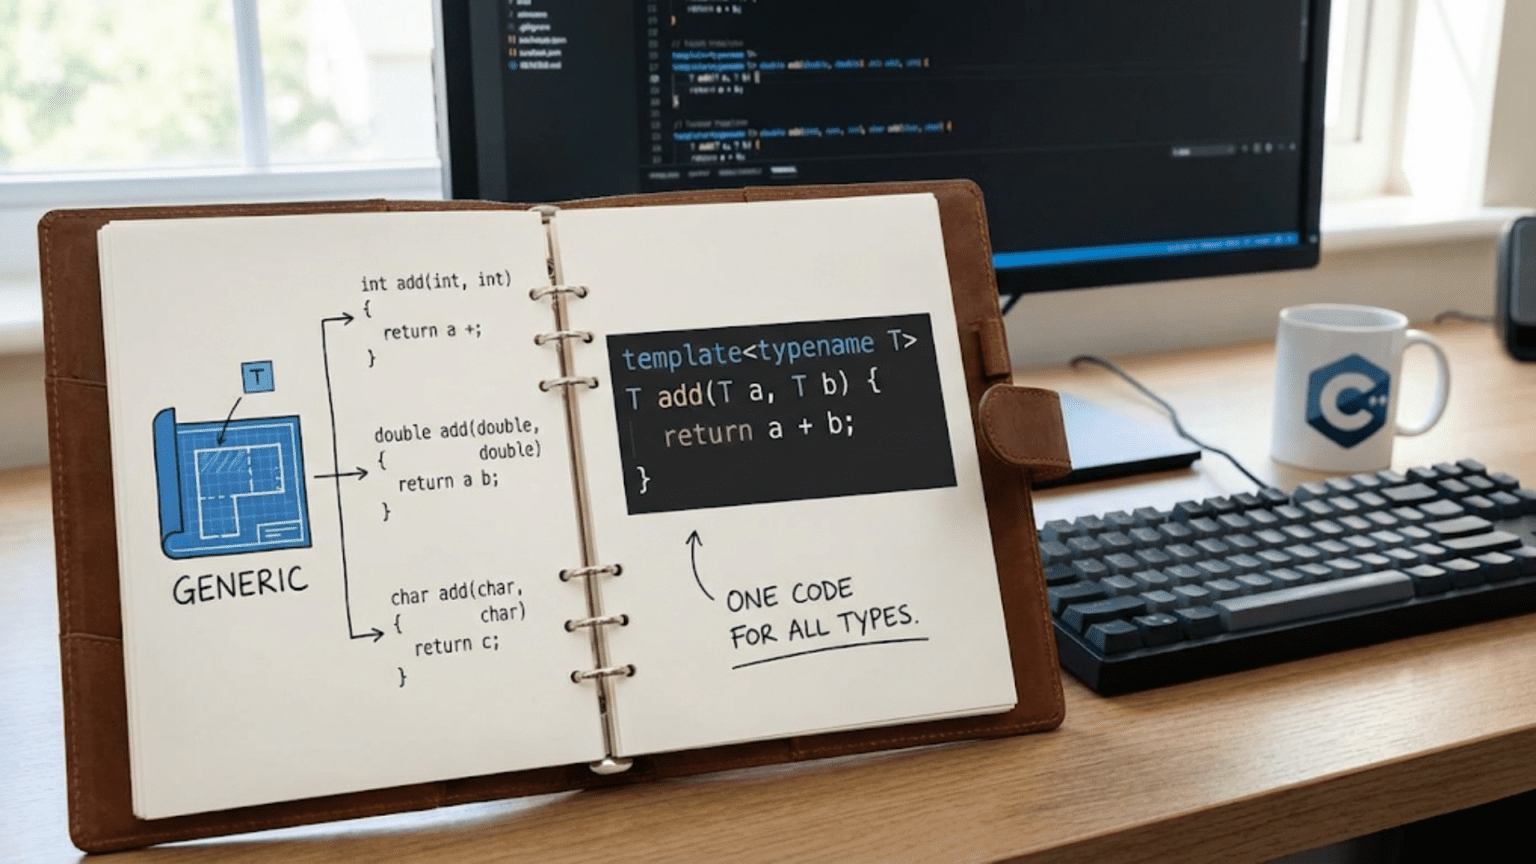 return a + b;
T add(T a, T b) {
return a + b;
}
T
GENERIC
int add(int, int)
{
return a +;
}
double add(double,
{ double)
return a b;
}
char add(char,
{ char)
return c;
}
template<typename T>
T add(T a, T b) {
return a + b;
}
ONE CODE
FOR ALL TYPES.
C++